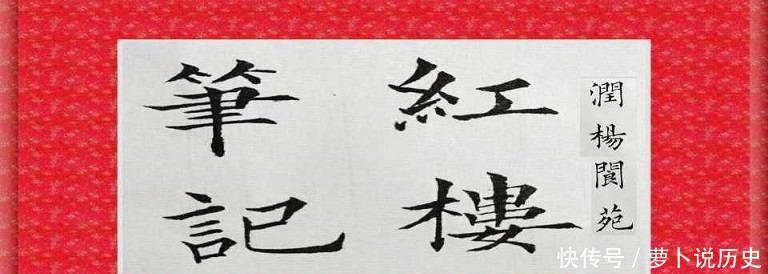 潤楊閬苑
紅樓
筆記
快传号 / 萝卜说历史